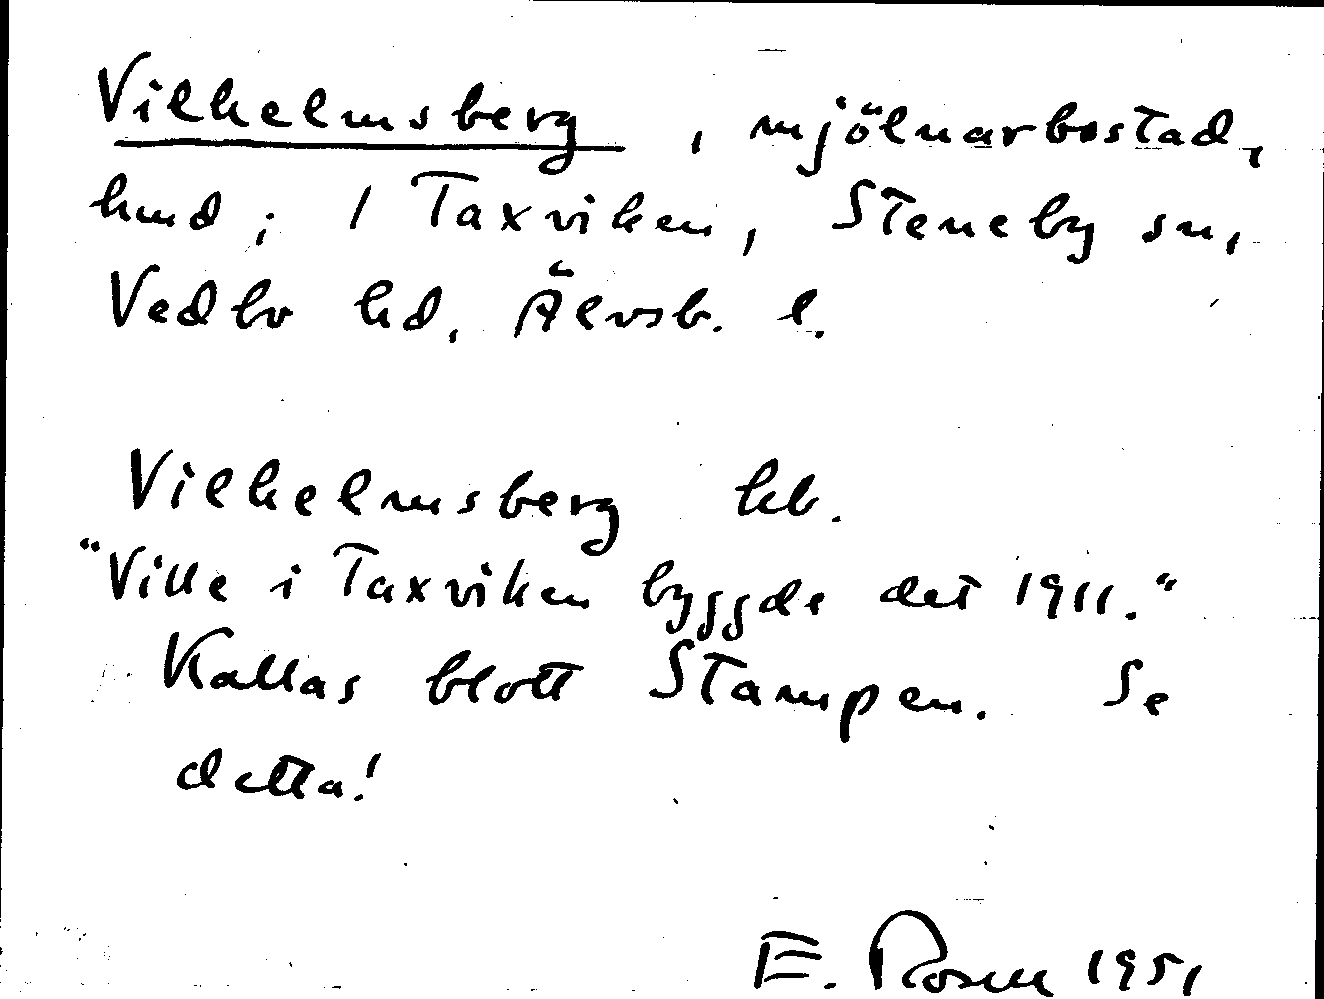 Vilhelmsberg, mjölnarbostad,
hmd; 1 Taxviken, Steneby sn,
Vedbo hd. Älvsb. l.
Vilhelmsberg kb.
"Ville i Taxviken byggde det 1911."
Kallas blott Stampen. Se
detta!
E. Rosell 1951